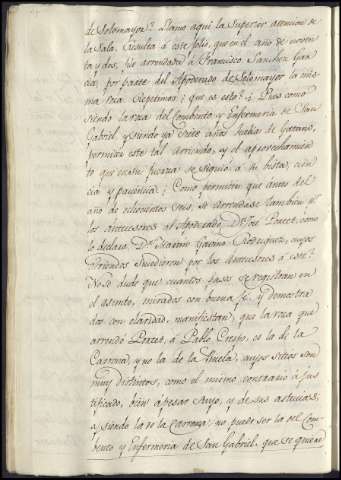 de Solomayor? Llamo aquí la Superior atencion de
la Sala. Resulta á este folio, que en el año de noven
ta y dos, fue arrendada á Francisco Sanchez Gar
cia, por parte del Apoderado de Solomayor la mis
ma roza Repetimos: ¿que es esto? ¿Pues como
siendo la roza del Combento y Enfermeria de San
Gabriel, y siendo ya siete años
permitio este tal arriendo, y el aprovechamien
to que en su fuerza se siguió á su vista, cien
cia y paciencia? ¿Como permitio que antes del
año de ochocientos seis, se arrendase tambien p.r
los Antecesores al Apoderado, D.n Josè Perez, como
lo declara D.n Martin Rodriguez, cuyos
Arriendos sucedieron por los Antecesores á este?
No se dude que quantos pasos se registran en
el asunto, mirados con buena fe, y demostra
dos con claridad, manifiestan, que la roza que
arrendó Perez, á Pablo Crespo, es la de la
Carrona, y no la de la cuyos sitios son
muy distintos, como el mismo contrario á jus
tificado, bien apesar suyo, y de sus astucias;
y siendo la de la Carrona, no puede ser la del Com
bento y Enfermeria de San Gabriel, que se quiere